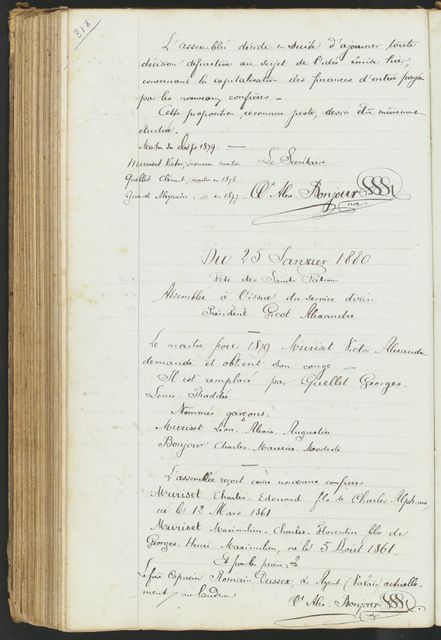 318
L'assemblée décide ensuite d'ajourner toute
décision définitive au sujet de l'idée émise hier,
concernant la capitalisation des finances d'entrée payées
par les nouveaux confrères —
Cette proposition, reconnue juste, devra être mûrement
étudiée.
1879 —
Muriset Victor,
Le Secrétaire
Quellet Clément, maître en 1878
Alexandre en 1877
Vr Alex. Bonjour
Du 25 Janvier 1880
Fête des Saints Patrons
Assemblée à l'issue du service divin
Président Gicot Alexandre
Le maître pour 1879 Muriset Victor Alexandre
demande et obtient son congé —
Il est remplacé par Quellet Georges-
Louis-Thaddée
Nommés garçons:
Muriset Léon-Alexis-Augustin
Bonjour Charles-Maurice-Modeste
L'assemblée reçoit comme nouveaux confrères
Muriset Charles-Edouard fils de Charles-Alphonse,
né le 12 Mars 1861
Muriset Maximilien-Charles-Florentin fils de
Georges-Henri-Maximilien, né le 5 Août 1861.
Capucin Romain à Agent (Valais) actuelle-
ment au Landeron
Vr Alex. Bonjour